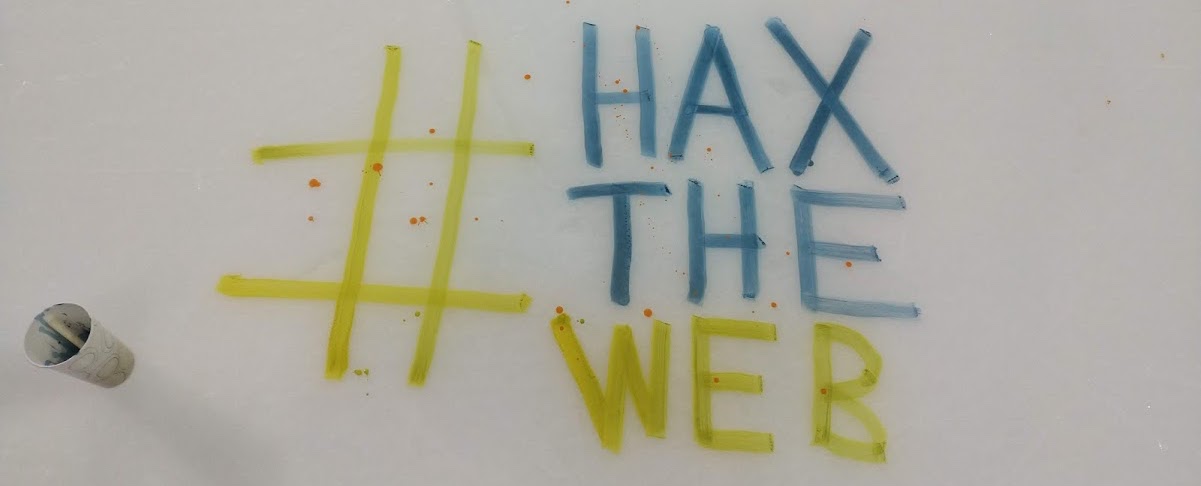 # HAX
THE
WEB